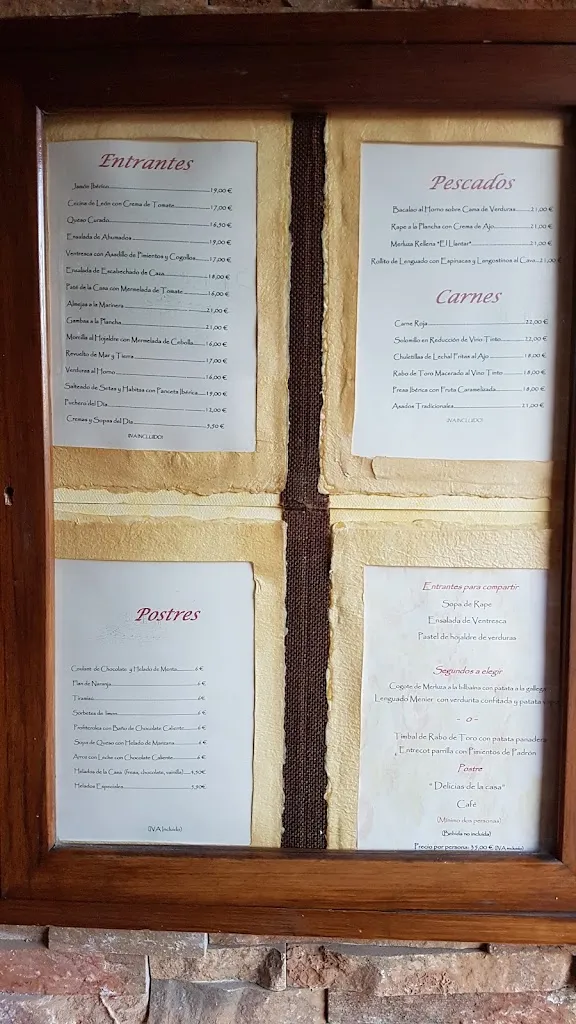 Entrantes
Jamón Ibérico 19,00 €
Cecina de León con Crema de Tomate 17,00 €
Queso Curado 16,50 €
Ensalada de Ahumados 19,00 €
Ventresca con Asadillo de Pimientos y Cogollos 17,00 €
Ensalada de Escabechado de Caza 18,00 €
Paté de la Casa con Mermelada de Tomate 16,00 €
Almejas a la Marinera
Gambas a la Plancha 21,00 €
Morcilla al Hojaldre con Mermelada de Cebolla 16,00 €
Revuelto de Mar y Tierra 17,00 €
Verduras al Horno 16,00 €
Salteado de Setas y Habitas con Panceta Ibérica 19,00 €
Puchero del Día 12,00 €
Cremas y Sopas del Día 9,50 €
(IVA INCLUIDO)
Pescados
Bacalao al Horno sobre Cama de Verduras 21,00 €
Rape a la Plancha con Crema de Ajo 21,00 €
Merluza Rellena "El Llantar" 21,00 €
Rollito de Lenguado con Espinacas y Langostinos al Cava 21,00 €
Carnes
Carne Roja 22,00 €
Solomillo en Reducción de Vino Tinto 22,00 €
Chuletillas de Lechal Fritas al Ajo 18,00 €
Rabo de Toro Macerado al Vino Tinto 18,00 €
Presa Ibérica con Fruta Caramelizada 18,00 €
Asados Tradicionales 21,00 €
(IVA INCLUIDO)
Postres
Coulant de Chocolate y Helado de Menta 6 €
Flan de Naranja 6 €
Tiramisú 6 €
Sorbetes de limón 6 €
Profiteroles con Baño de Chocolate Caliente 6 €
Sopa de Queso con Helado de Manzana 6 €
Arroz con Leche con Chocolate Caliente 6 €
Helados de la Casa (fresa, chocolate, vainilla) 4,50€
Helados Especiales 5,50€
(IVA Incluido)
Entrantes para compartir
Sopa de Rape
Ensalada de Ventresca
Pastel de hojaldre de verduras
Segundos a elegir
Cogote de Merluza a la bilbaína con patata a la gallega
Lenguado Menier con verdurita confitada y patata
- o -
Timbal de Rabo de Toro con patata panadera
Entrecot parrilla con Pimientos de Padrón
Postre
"Delicias de la casa"
Café
(Mínimo dos personas)
(Bebida no incluida)
Precio por persona: 35,00 € (IVA incluido)